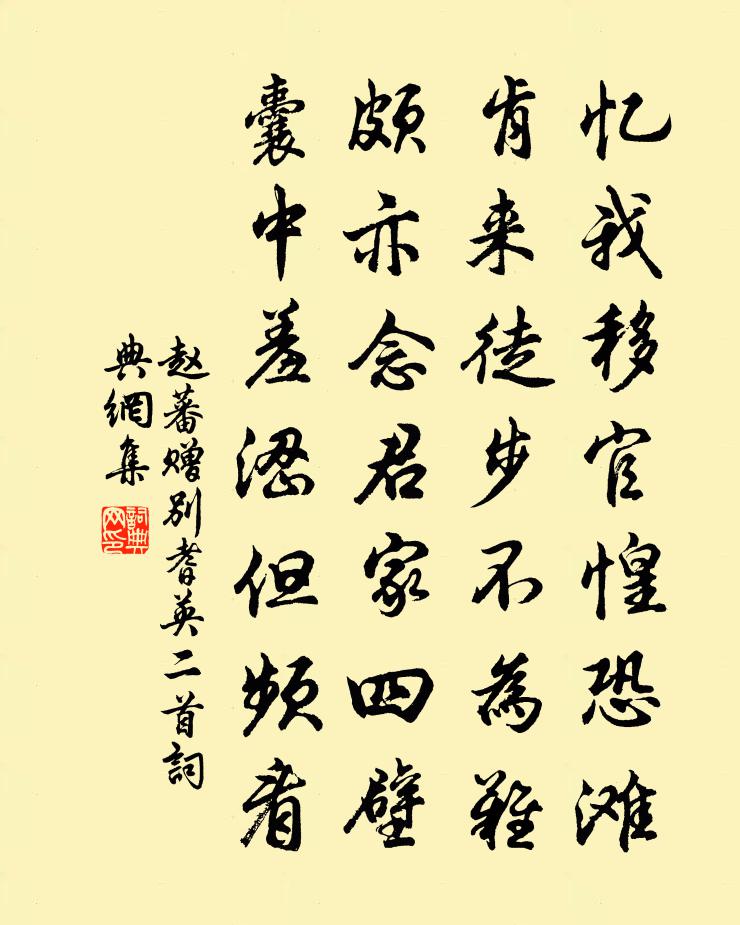 忆我移官惶恐滩
肯来徒步不為難
頗亦念君家四壁
囊中羞涩但频看
赵蕃赠别耆英二首詞
典網集
詞典网印